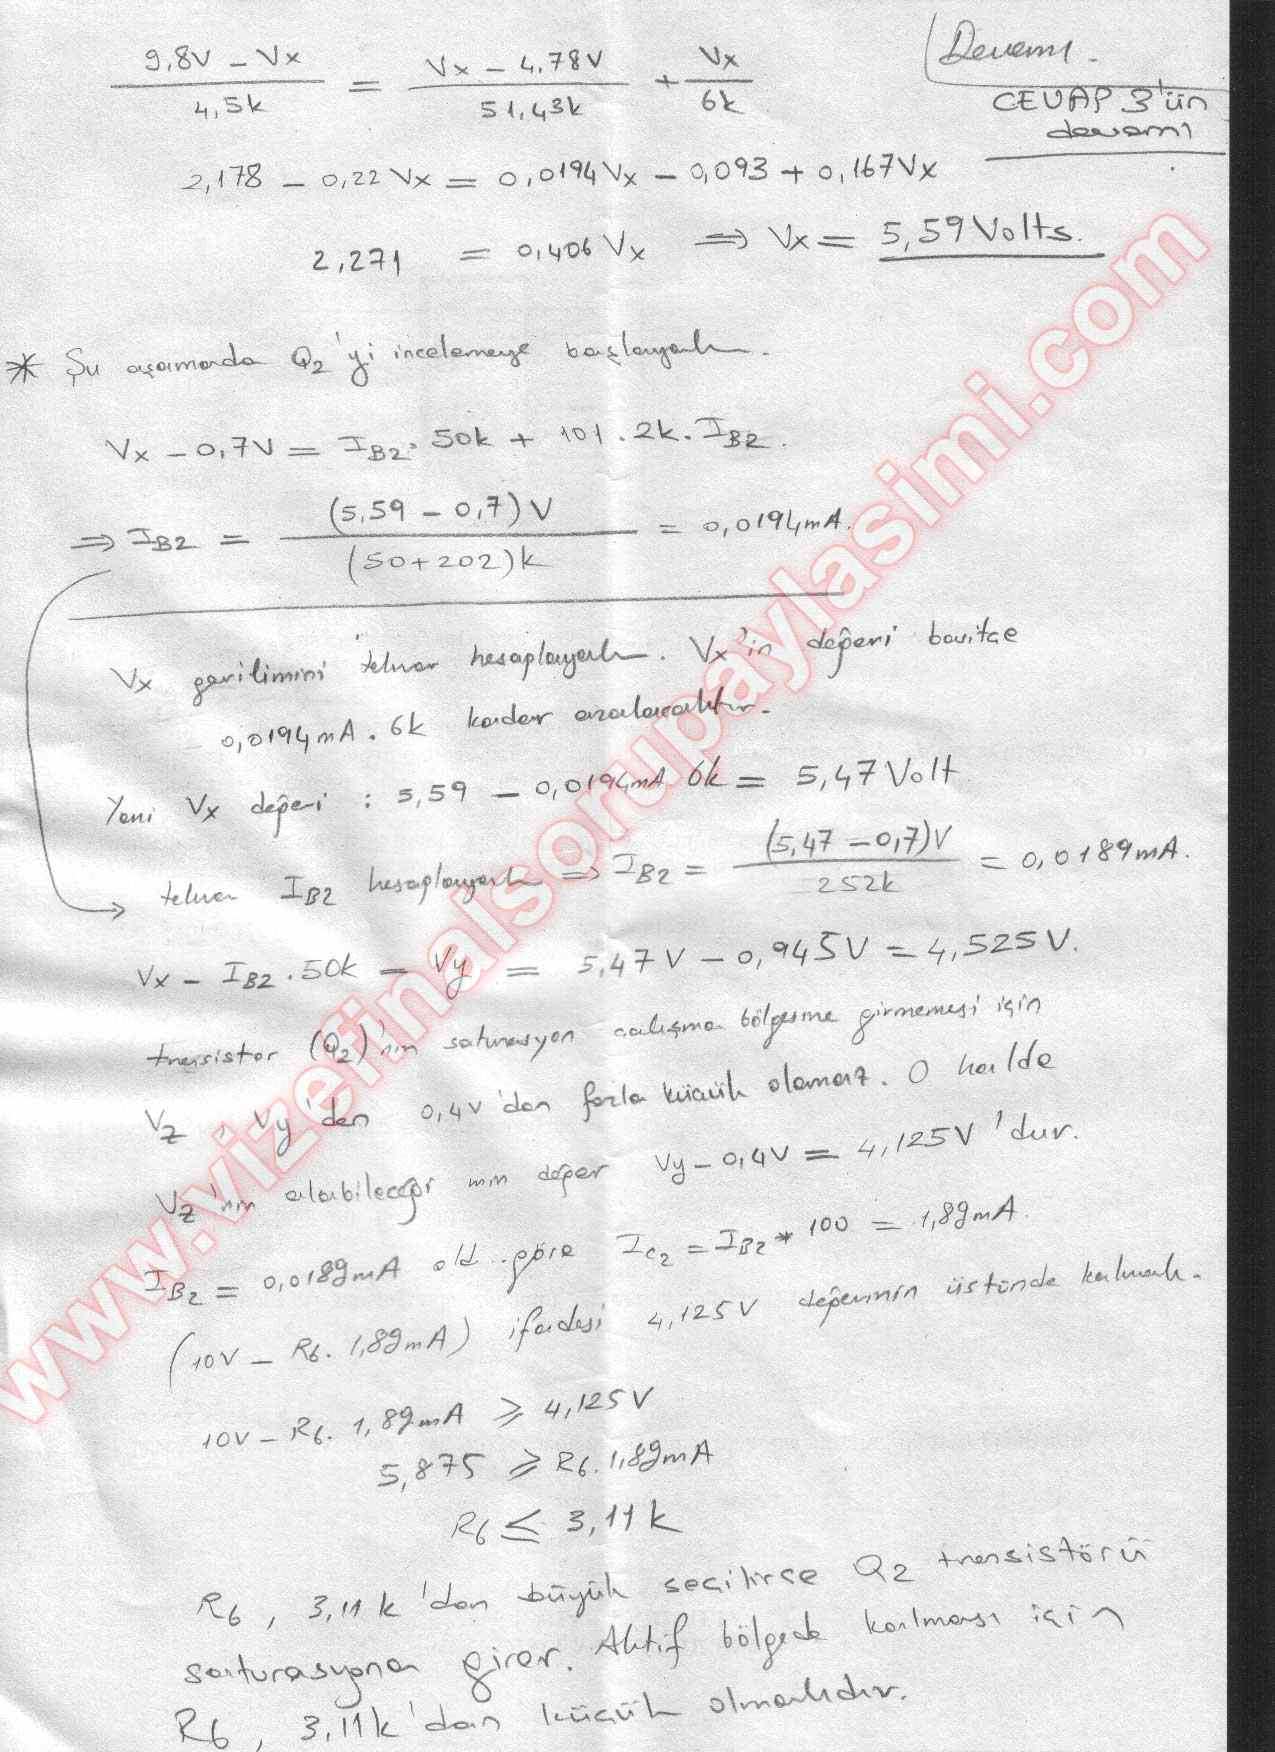 Devamı.
CEVAP 3'ün
devamı
(9,8V - Vx) / 4,5k = (Vx - 4,78V) / 51,43k + Vx / 6k
2,178 - 0,22Vx = 0,0194Vx - 0,093 + 0,167Vx
2,271 = 0,406Vx ⇒ Vx = 5,59 Volts.
* Şu aşamada Q2'yi incelemeye başlayalım.
Vx - 0,7V = IB2. 50k + 101.2k.IB2.
⇒ IB2 = (5,59 - 0,7)V / (50+202)k = 0,0194mA.
Vx gerilimini tekrar hesaplayalım. Vx'in değeri basitçe
0,0194mA.6k kadar azalacaktır.
Yeni Vx değeri : 5,59 - 0,0194mA 6k = 5,47 Volt
tekrar IB2 hesaplayalım ⇒ IB2 = (5,47 - 0,7)V / 252k = 0,0189mA.
Vx - IB2.50k = Vy = 5,47V - 0,945V = 4,525V.
transistor (Q2)'nin saturasyon çalışma bölgesine girmemesi için
Vz, Vy'den 0,4V'dan fazla küçük olamaz. O halde
Vz'nin alabileceği min değer Vy - 0,4V = 4,125V'dur.
IB2 = 0,0189mA old. göre IC2 = IB2 * 100 = 1,89mA.
(10V - R6. 1,89mA) ifadesi 4,125V değerinin üstünde kalmalı.
10V - R6. 1,89mA ≥ 4,125V
5,875 ≥ R6.1,89mA
R6 ≤ 3,11k
R6, 3,11k'dan büyük seçilirse Q2 transistörü
saturasyona girer. Aktif bölgede kalması için
R6, 3,11k'dan küçük olmalıdır.
www.vizefinalsorupaylasimi.com